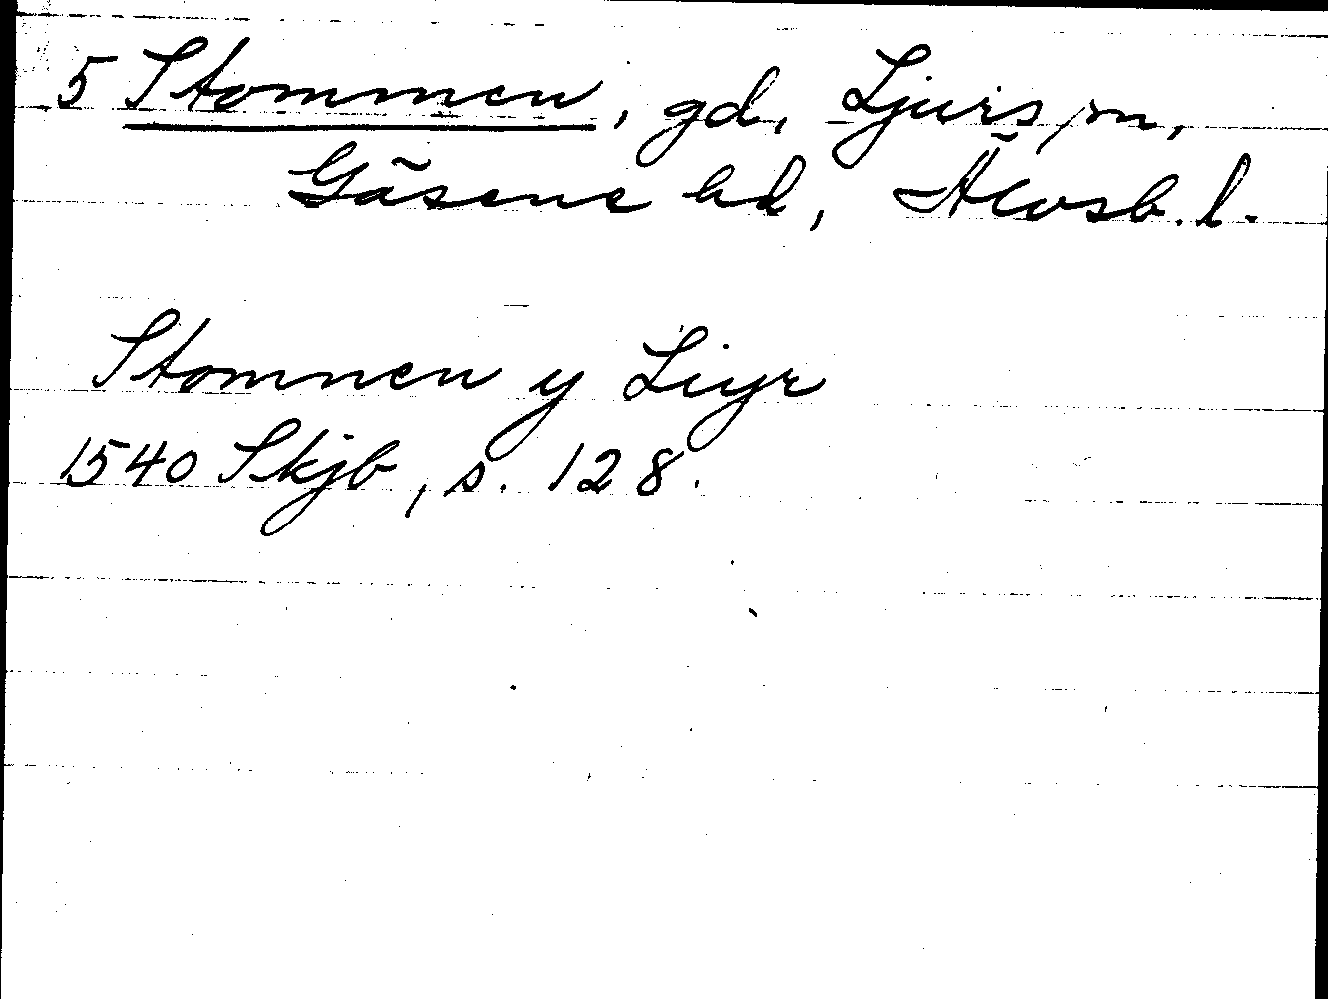 5 Stommen, gd, Ljurs sn,
Gäsene hd, Älvsb. l.
Stomnen y Liyr
1540 Skjb, s. 128.